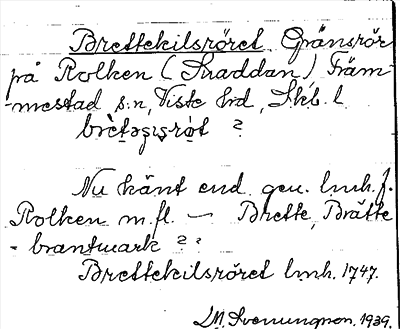 Brettekilsröret Gränsrör
på Rolken (Snaddan) Främ-
-mestad s:n, Viste hrd, Skb. l.
brètəçısrø̀t ?
Nu känt end. gen. lmh. f.
Rolken m. fl. — Brette, Brätte
- brantmark ? ?
Brettekilsröret lmh. 1747.
1939.